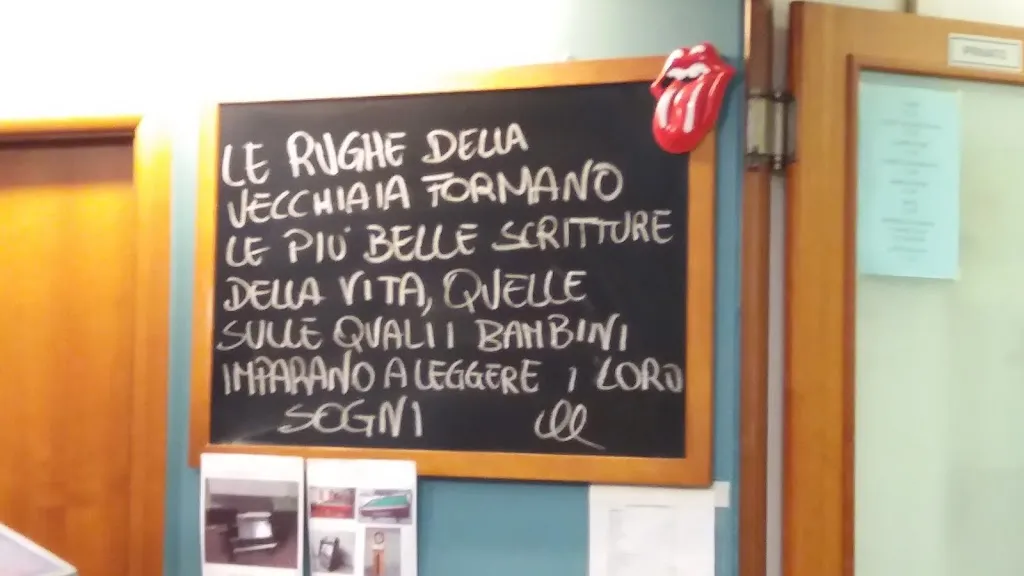 LE RUGHE DELLA
VECCHIAIA FORMANO
LE PIU' BELLE SCRITTURE
DELLA VITA, QUELLE
SULLE QUALI I BAMBINI
IMPARANO A LEGGERE I LORO
SOGNI